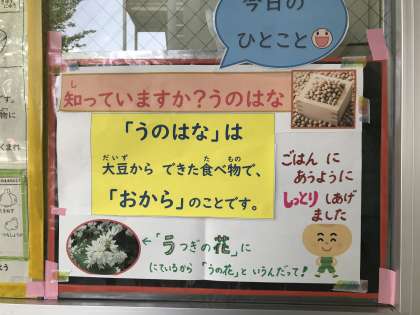 今日の
ひとこと
知っていますか?うのはな
「うのはな」は
大豆から できた食べ物で、
「おから」のことです。
ごはん に
あうように
しっとり しあげ
ました
←「うつぎの花」に
にているから 「うの花」と いうんだって!